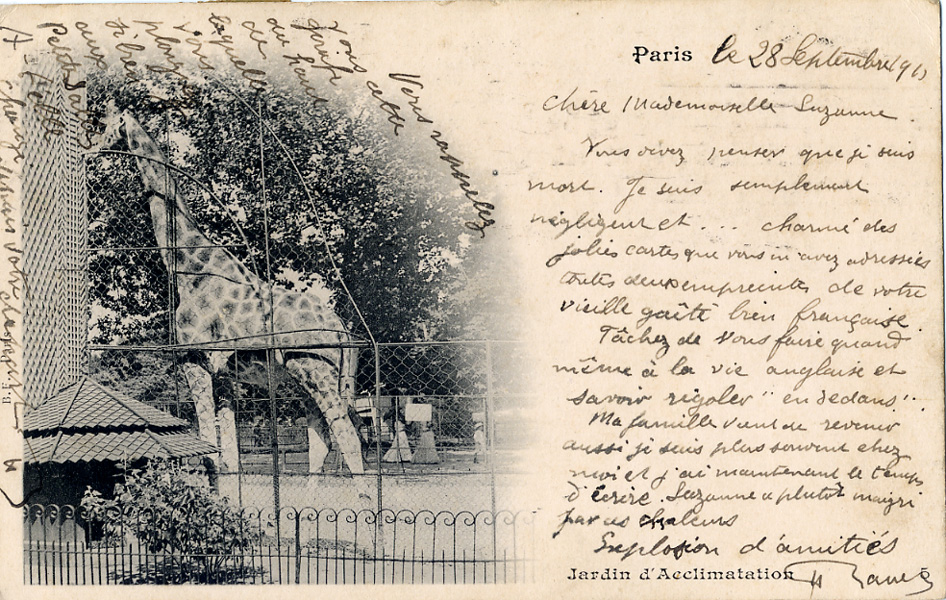 Paris le 28 Septembre
Chère Mademoiselle Suzanne
Vous devez penser que je suis
mort. Je suis simplement
négligent et ... charmé des
jolies cartes que vous m'avez adressées
toutes deux empreintes de votre
vieille gaîté bien française.
Tâchez de vous faire quand
même à la vie anglaise et
savoir rigoler "en dedans".
Ma famille vient de revenir
aussi je suis plus souvent chez
moi et j'ai maintenant le temps
d'écrire. Suzanne a plutôt maigri
par ces chaleurs
Explosion d'amitiés
Jardin d'Acclimatation
5
Vous rappelez
vous cette
girafe
du haut
de
laquelle
vous
plongiez
si bien
aux
Petites
B.J.